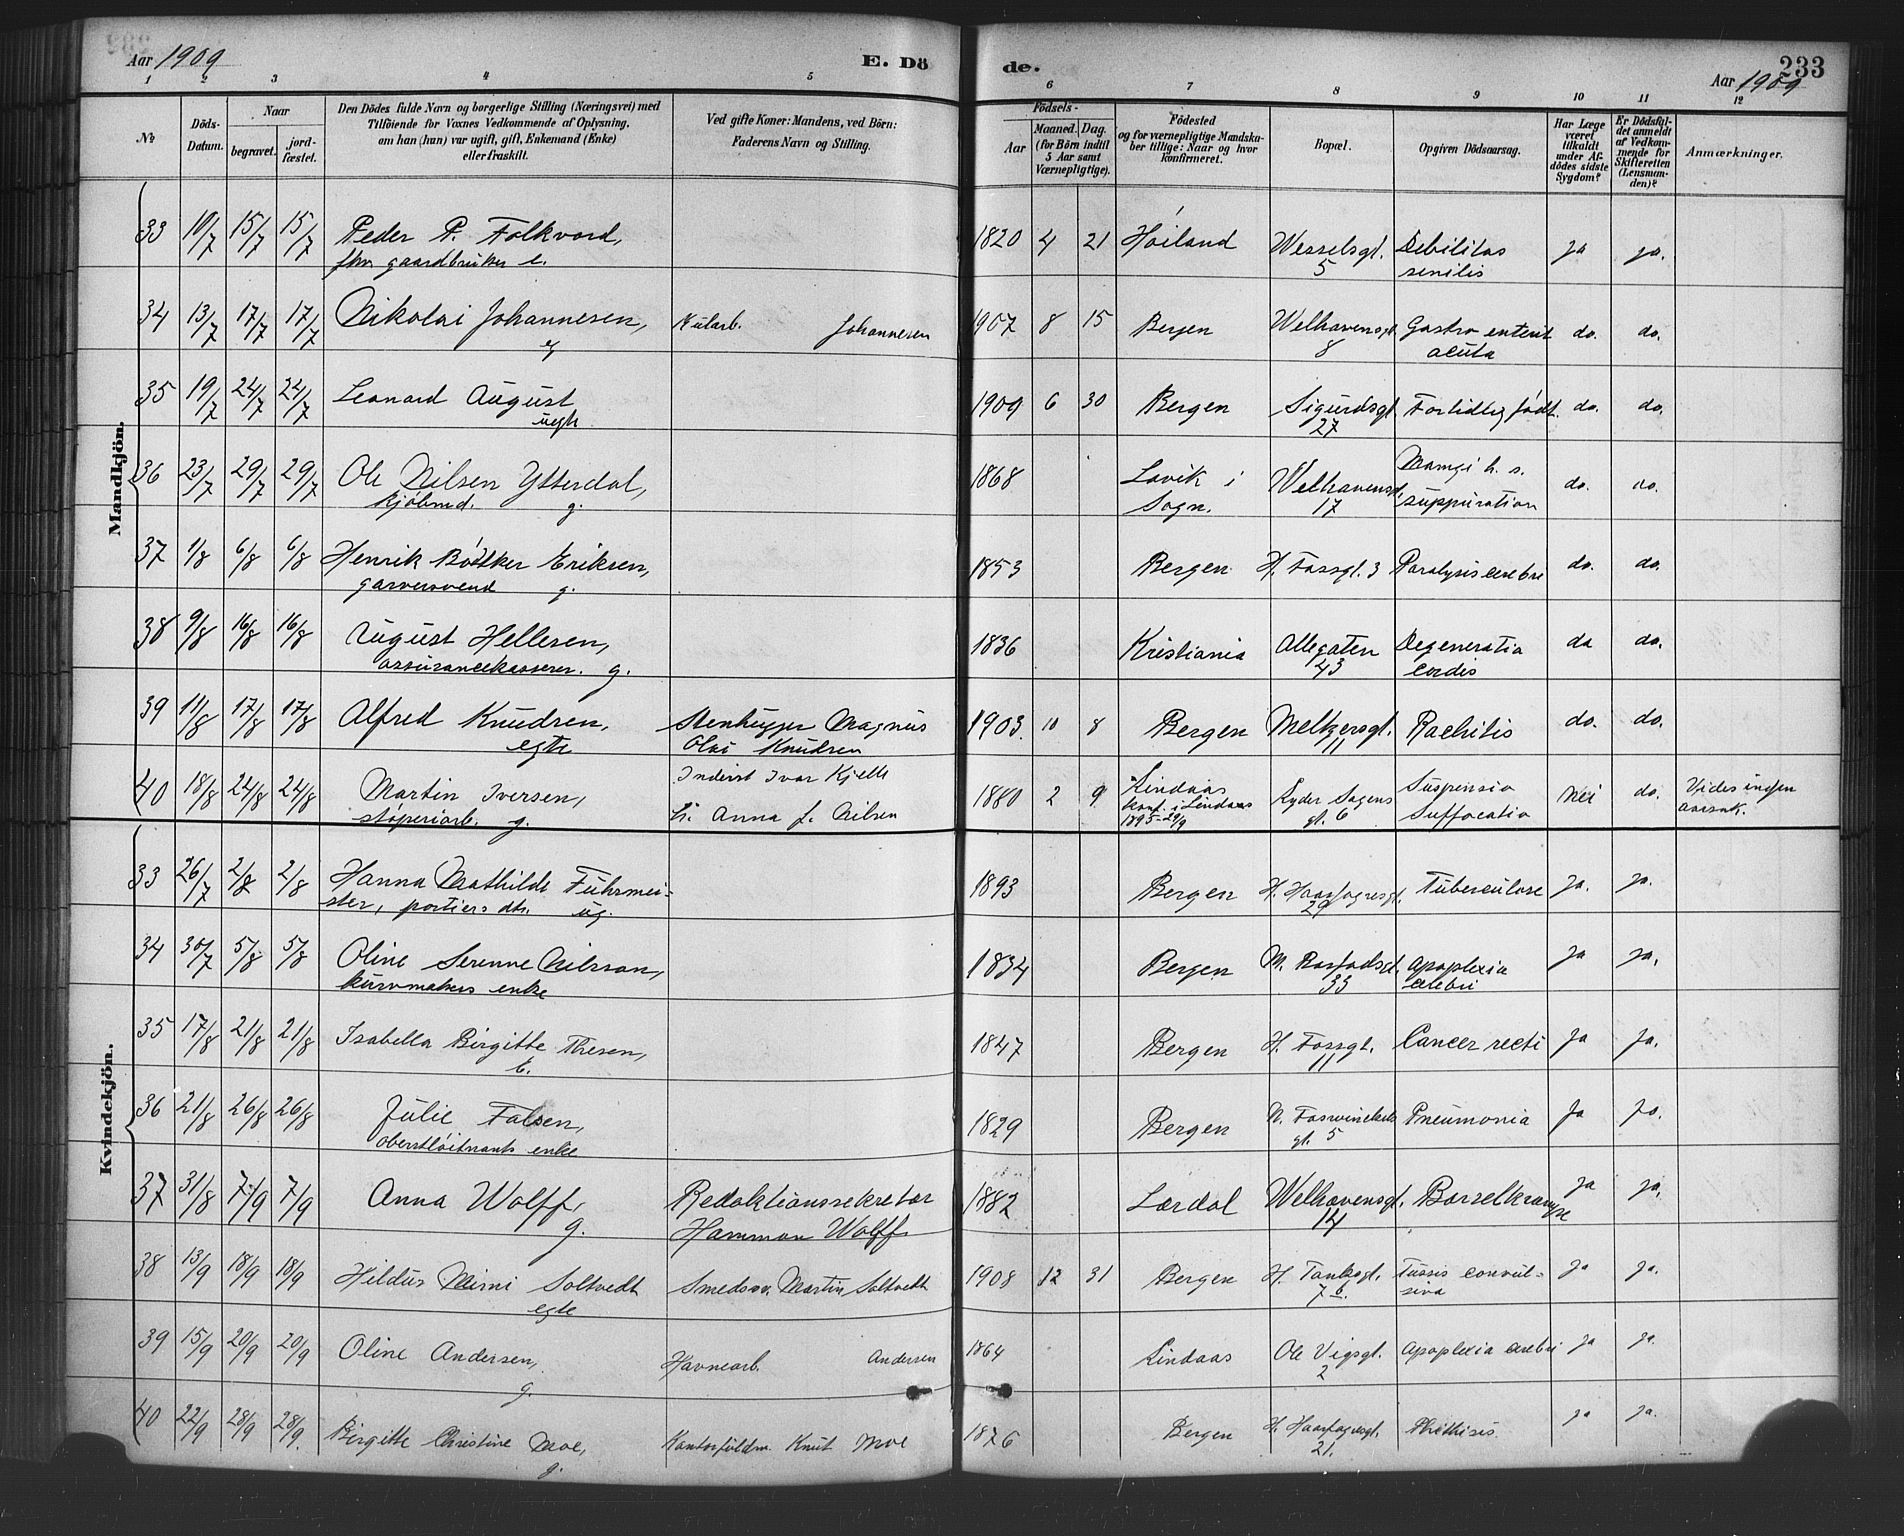 Aar 1909
E. Dö
de.
233
Aar 1909
1 2 3 4 5 6 7 8 9 10 11 12
No
Döds-Datum.
Naar
begravet.
jord-fæstet.
Den Dödes fulde Navn og borgerlige Stilling (Næringsvei) med
Tilföiende for Voxnes Vedkommende af Oplysning,
om han (hun) var ugift, gift, Enkemand (Enke)
eller fraskilt.
Ved gifte Koner: Mandens, ved Börn:
Faderens Navn og Stilling.
Födsels-
Aar
Maaned.
Dag.
(for Börn indtil
5 Aar samt
Værnepligtige).
Födested
og for værnepligtige Mandska-
ber tillige: Naar og hvor
konfirmeret.
Bopæl.
Opgiven Dödsaarsag.
Har Læge
været
tilkaldt
under Af-
dödes sidste
Sygdom?
Er Dödsfal-
det anmeldt
af Vedkom-
mende for
Skifteretten
(Lensman-
den)?
Anmærkninger.
Mandkjön.
33 10/7 15/7 15/7 Peder P. Folkvord, 1820 4 21 Høiland Wesselsgt. Debilitas ja ja.
fhv gaardbruker e. 5 senilis
34 13/7 17/7 17/7 Nikolai Johannesen, Kularb. Johannesen 1907 8 15 Bergen Welhavensgt. Gastro enterit do. do.
eg 8 acuta
35 19/7 24/7 24/7 Leonard August 1909 6 30 Bergen Sigurdsgt. Fortidlig født. do. do.
uegte 27
36 23/7 29/7 29/7 Ole Nilsen Ytterdal, 1868 Lavik i Welhavensgt. do. do.
kjøbmd. g. Sogn. 17 suppuration
37 1/8 6/8 6/8 Henrik Bødtker Eriksen, 1853 Bergen H. Fossgt. 3 Paralysis cerebri do. do.
garversvend g.
38 9/8 16/8 16/8 August Hellesen, 1836 Kristiania Allegaten Degeneratio do do.
assurancekasserer. g. 43 cordis
39 11/8 17/8 17/8 Alfred Knudsen, Stenhugger Magnus 1903. 10 8 Bergen Meltzersgt. Rachitis do. do.
egte Olai Knudsen 11
40 18/8 24/8 24/8 Martin Iversen, Inderst Ivar Kjelle 1880 2 9 Lindaas Lyder Sagens Suspensio nei do. Vides ingen
støperiarb. g. h. Anna J. Nilsen konf. i Lindaas gt. 6 Suffocatio aarsak.
1895-29/9
Kvindekjön.
33 26/7 2/8 2/8 Hanna Mathilde Fuhrmei- 1893 Bergen H. Haarfagresgt. Tuberculose ja. ja.
ster, portiers dtr. ug. 29
34 30/7 5/8 5/8 Oline Serenne Nilsson, 1834 Bergen Apoplexia ja ja.
kurvmakers enke 33 cerebri
35 17/8 21/8 21/8 Isabella Birgitte Thesen, 1847 Bergen H. Fossgt. Cancer recti ja ja.
E. 11
36 21/8 26/8 26/8 Julie Falsen, 1829 Bergen N. Fosswinckels Pneumonia ja ja.
oberstløitnants enke gt. 5
37 31/8 7/9 7/9 Anna Wolff, Redaktionssekretær 1882 Lærdal Welhavensgt. Barselkrampe ja ja.
g. Hammon Wolff. 14
38 13/9 18/9 18/9 Hildur Mimi Soltvedt Smedsv. Martin Soltvedt 1908 12 31 Bergen H. Tanksgt. Tussis convul- ja ja.
egte 7 b. siva
39 15/9 20/9 20/9 Oline Andersen, Havnearb. Andersen 1864 Lindaas Ole Vigsgt. Apoplexia cerebri ja ja.
g. 2
40 22/9 28/9 28/9. Birgitte Christine Moe, Kontorfuldm. Knut Moe 1876 Bergen H. Haarfagresgt. Phthisis. ja ja.
g. 21.